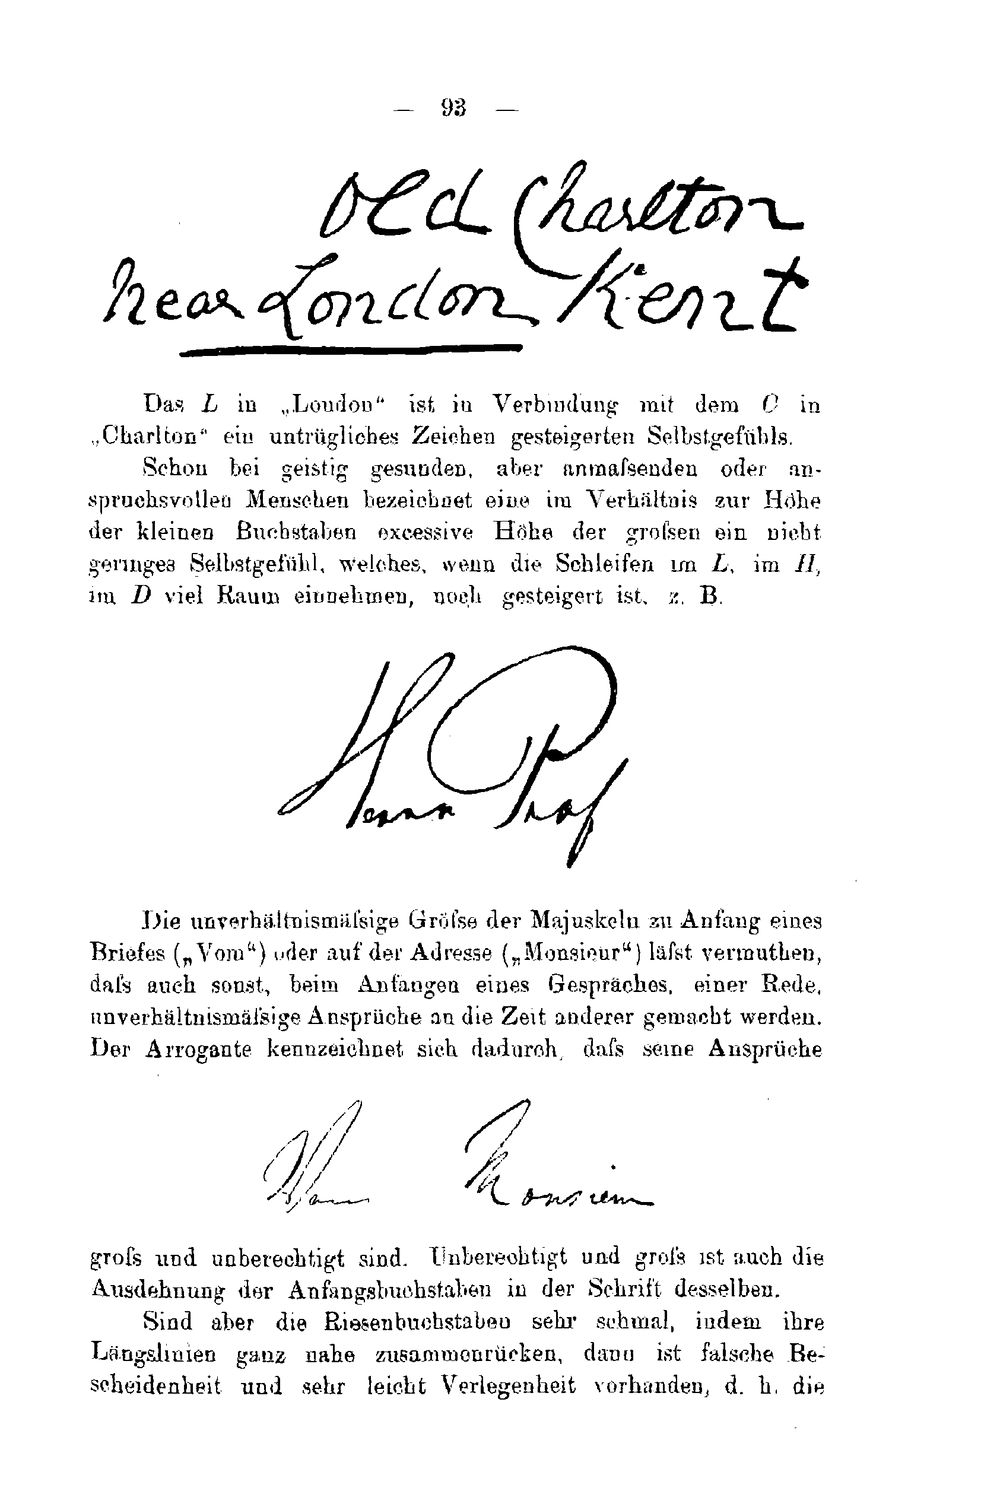 — 93 —
Old Charlton
near London Kent
Das L in „London“ ist in Verbindung mit dem C in
„Charlton“ ein untrügliches Zeichen gesteigerten Selbstgefühls.
Schon bei geistig gesunden, aber anmaſsenden oder an-
spruchsvollen Menschen bezeichnet eine im Verhältnis zur Höhe
der kleinen Buchstaben excessive Höhe der groſsen ein nicht
geringes Selbstgefühl, welches, wenn die Schleifen im L, im H,
im D viel Raum einnehmen, noch gesteigert ist, z. B.
Herrn Prof
Die unverhältnismäſsige Gröſse der Majuskeln zu Anfang eines
Briefes („Vom“) oder auf der Adresse („Monsieur“) läſst vermuthen,
daſs auch sonst, beim Anfangen eines Gespräches, einer Rede,
unverhältnismäſsige Ansprüche an die Zeit anderer gemacht werden.
Der Arrogante kennzeichnet sich dadurch, daſs seine Ansprüche
Vom Monsieur
groſs und unberechtigt sind. Unberechtigt und groſs ist auch die
Ausdehnung der Anfangsbuchstaben in der Schrift desselben.
Sind aber die Riesenbuchstaben sehr schmal, indem ihre
Längslinien ganz nahe zusammenrücken, dann ist falsche Be-
scheidenheit und sehr leicht Verlegenheit vorhanden, d. h. die